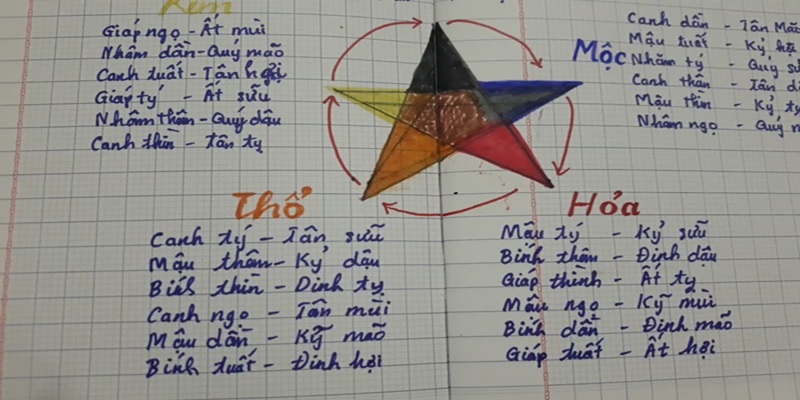 Kim
Giáp ngọ - Ất mùi
Nhâm dần - Quý mão
Canh tuất - Tân hợi
Giáp tý - Ất sửu
Nhâm thân - Quý dậu
Canh thìn - Tân tỵ
Mộc
Canh dần - Tân Mão
Mậu tuất - Kỷ hợi
Nhâm tý - Quý sử
Canh thân - Tân d
Mậu thìn - Kỷ tỵ
Nhâm ngọ - Quý m
Thổ
Canh tý - Tân sửu
Mậu thân - Kỷ dậu
Bính thìn - Dinh tỵ
Canh ngọ - Tân mùi
Mậu dần - Kỹ mão
Bính tuất - Đinh hợi
Hỏa
Mậu tý - Kỷ sửu
Bính thân - Đinh dậu
Giáp thình - Ất tỵ
Mậu ngọ - Kỹ mùi
Bính dần - Định mão
Giáp tuất - Ất hợi